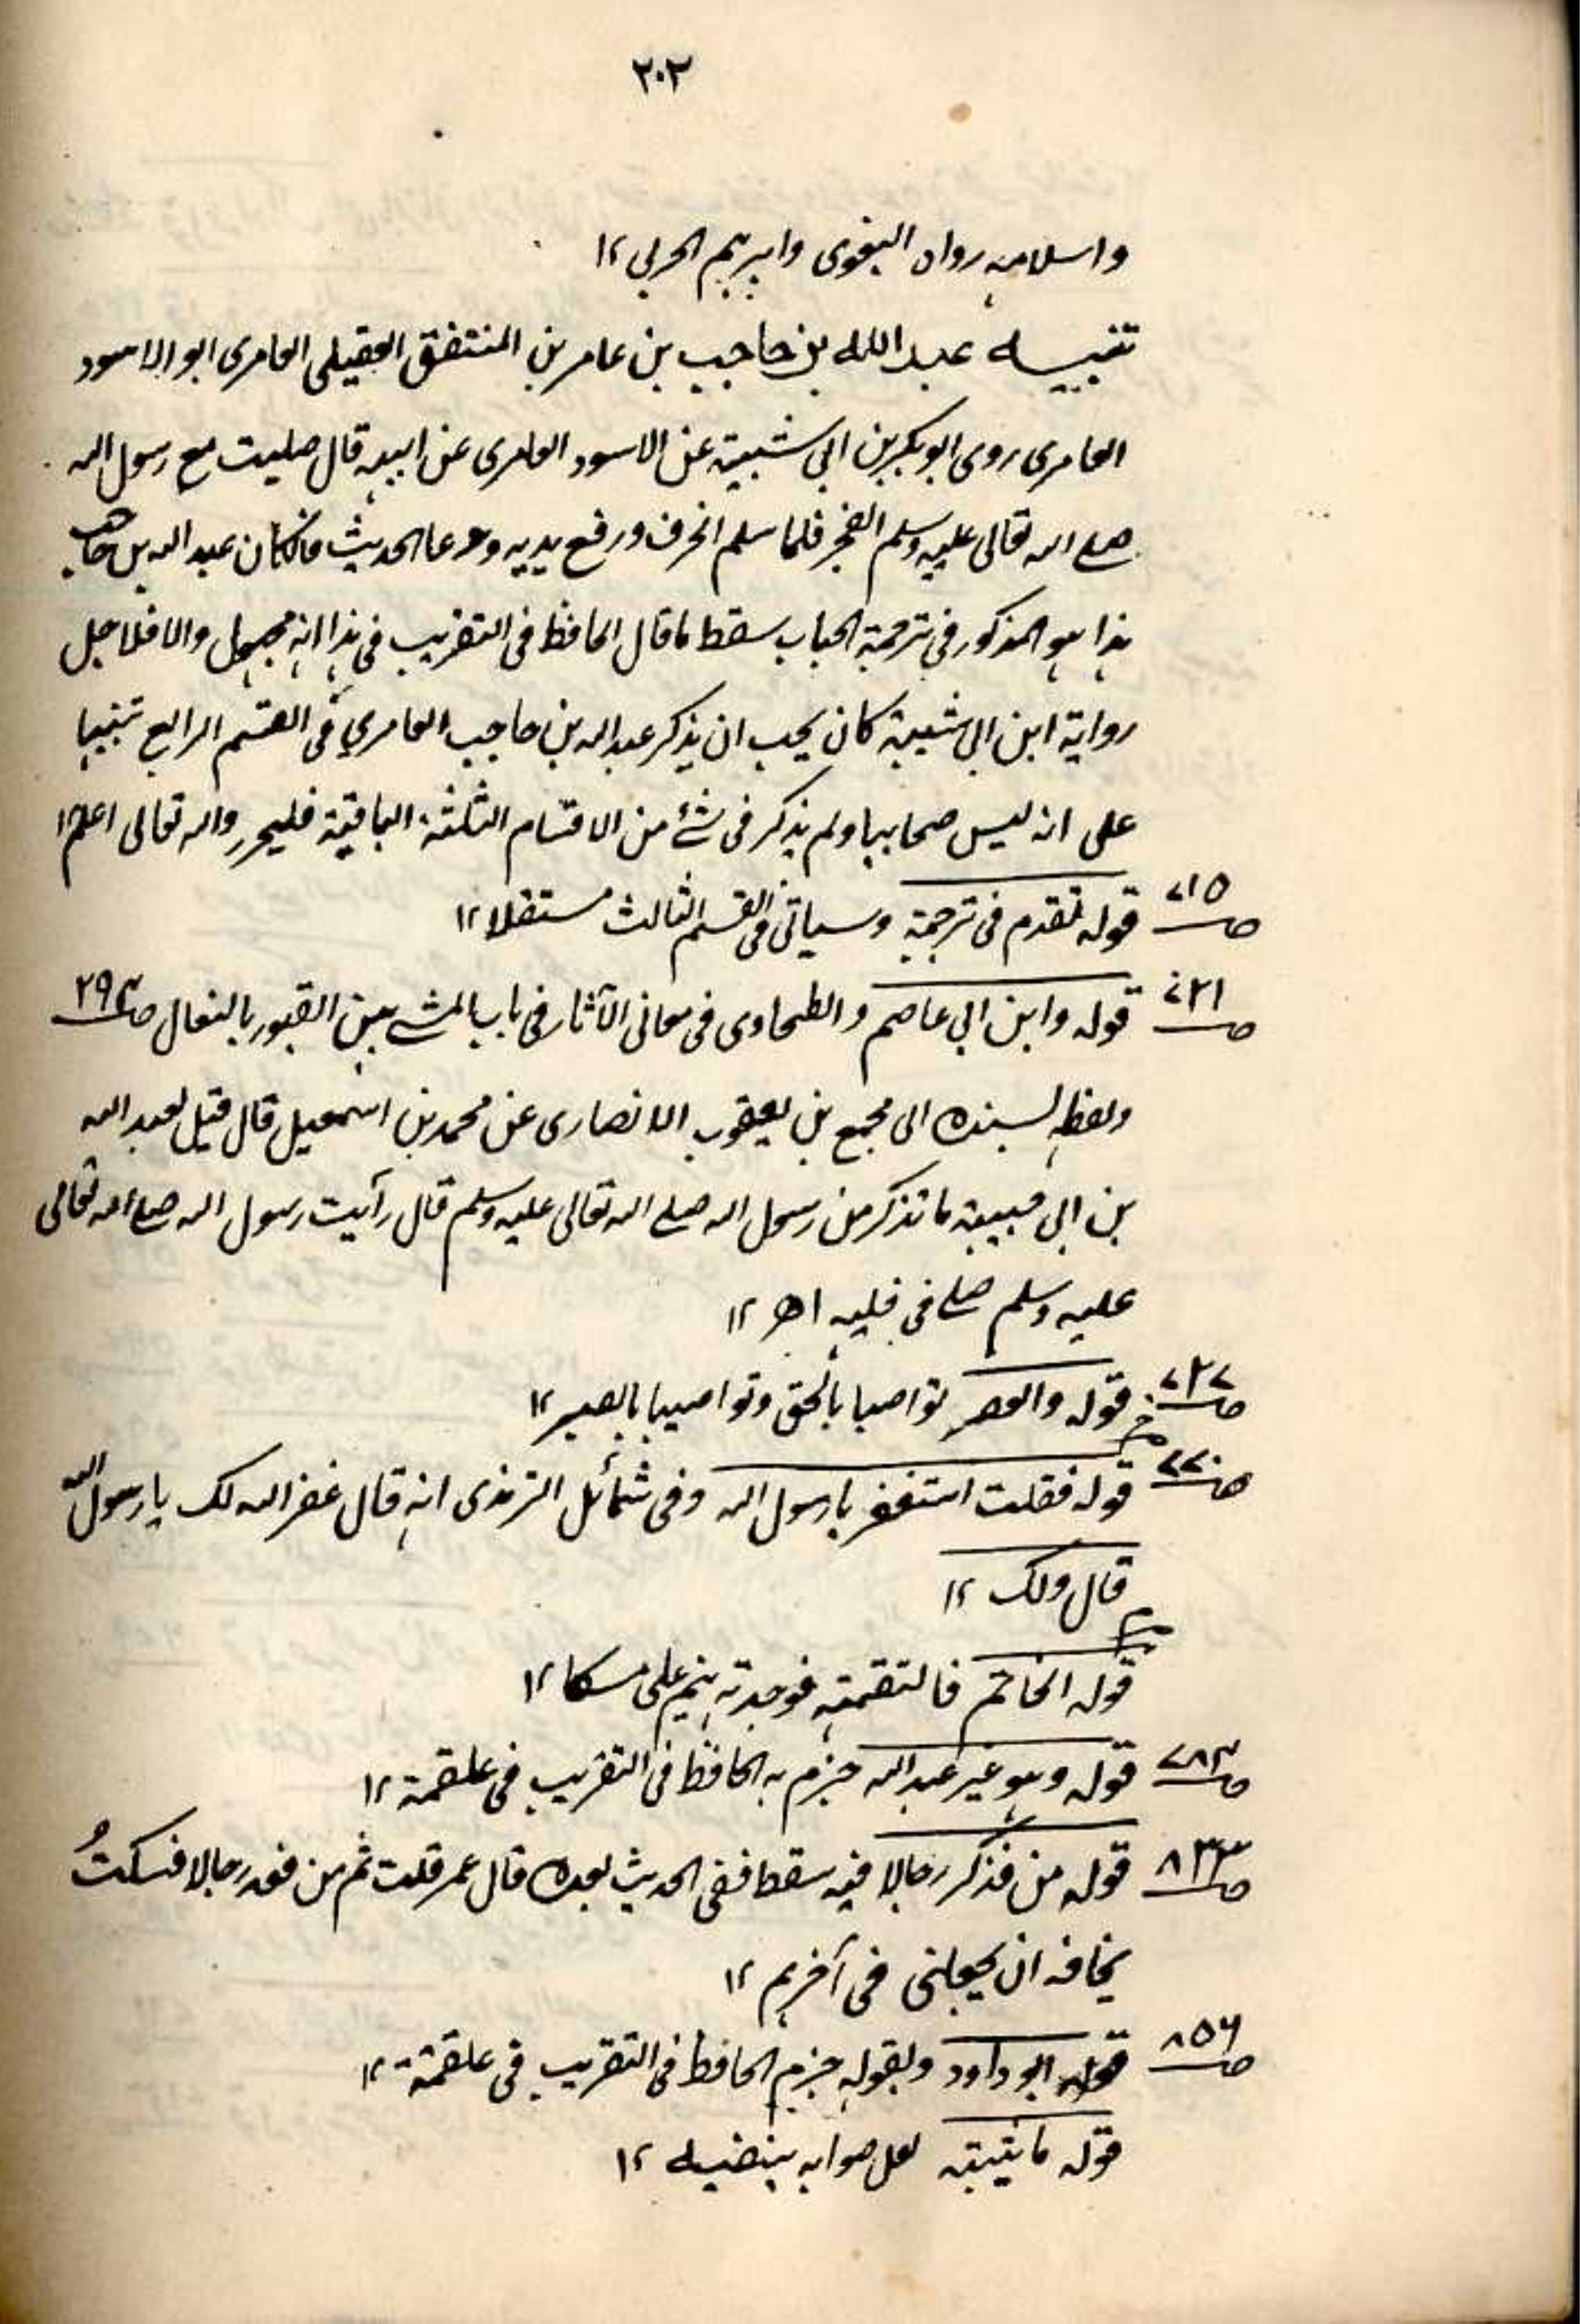 ٢٠٢
واسلامه رواه البغوى وابرہیم الحربی ١٢
تنبیہ عبداللہ بن حاجب بن عامر بن المنتفق العقیلی العامری ابو الاسود
العامری روی ابوبکر بن ابی شیبۃ عن الاسود العامری عن ابیہ قال صلیت مع رسول اللہ
صلے اللہ تعالی علیہ وسلم الفجر فلما سلم انحرف ورفع یدیہ ودعا الحدیث فان کان عبداللہ بن حاجب
ہذا ہو المذکور فی ترجمۃ الحباب سقط ما قال الحافظ فی التقریب فی ہذا انہ مجہول والا فلاجل
روایۃ ابن ابی شیبۃ کان یجب ان یذکر عبداللہ بن حاجب العامری فی القسم الرابع تنبیہا
علی انہ لیس صحابیا ولم یذکر فی شئ من الاقسام الثلثۃ الباقیۃ فلیحرر واللہ تعالی اعلم ١٢
صـ ٧١٥ قولہ تقدم فی ترجمۃ وسیاتی فی القسم الثالث مستقلا ١٢
صـ ٧٢١ قولہ وابن ابی عاصم والطحاوی فی معانی الآثار فی باب المشے بین القبور بالنعال صـ ٢٩٣
ولفظہ بسندہ الی مجمع بن یعقوب الانصاری عن محمد بن اسمعیل قال قیل لعبداللہ
بن ابی حبیبۃ ما تذکر من رسول اللہ صلے اللہ تعالی علیہ وسلم قال رأیت رسول اللہ صلے اللہ تعالی
علیہ وسلم صلے فی نعلیہ اھ ١٢
صـ ٧٢٧ قولہ والعصر تواصیا بالحق وتواصیا بالصبر ١٢
صـ ٧٧٠ قولہ فقلت استغفر یا رسول اللہ وفی شمائل الترمذی انہ قال غفر اللہ لک یا رسول اللہ
قال ولک ١٢
قولہ الخاتم فالتقمتہ فوجدتہ ینم علی مسکا ١٢
صـ ٧٨٣ قولہ وہو غیر عبداللہ جزم بہ الحافظ فی التقریب فی علقمۃ ١٢
صـ ٨٣٣ قولہ من فذکر رجالا فیہ سقط ففی الحدیث بعدہ قال عمر قلت ثم من فعد رجالا فسکتُ
مخافۃ ان یجعلنی فی آخرہم ١٢
صـ ٨٥٦ قولہ ابو داود وبقولہ جزم الحافظ فی التقریب فی علقمۃ ١٢
قولہ لعل صوابہ ١٢